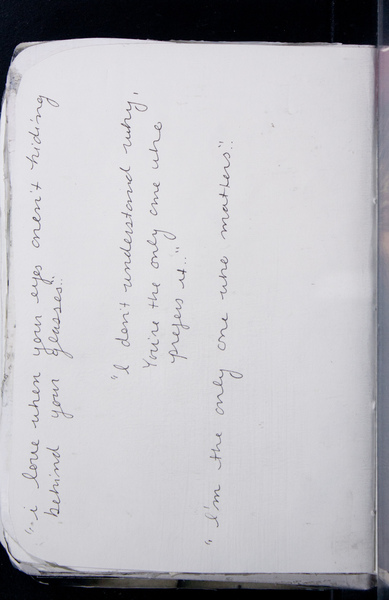 "i love when your eyes aren't hiding
behind your glasses.."
"I don't understand why,
You're the only one who
prefers it..."
"I'm the only one who matters"..